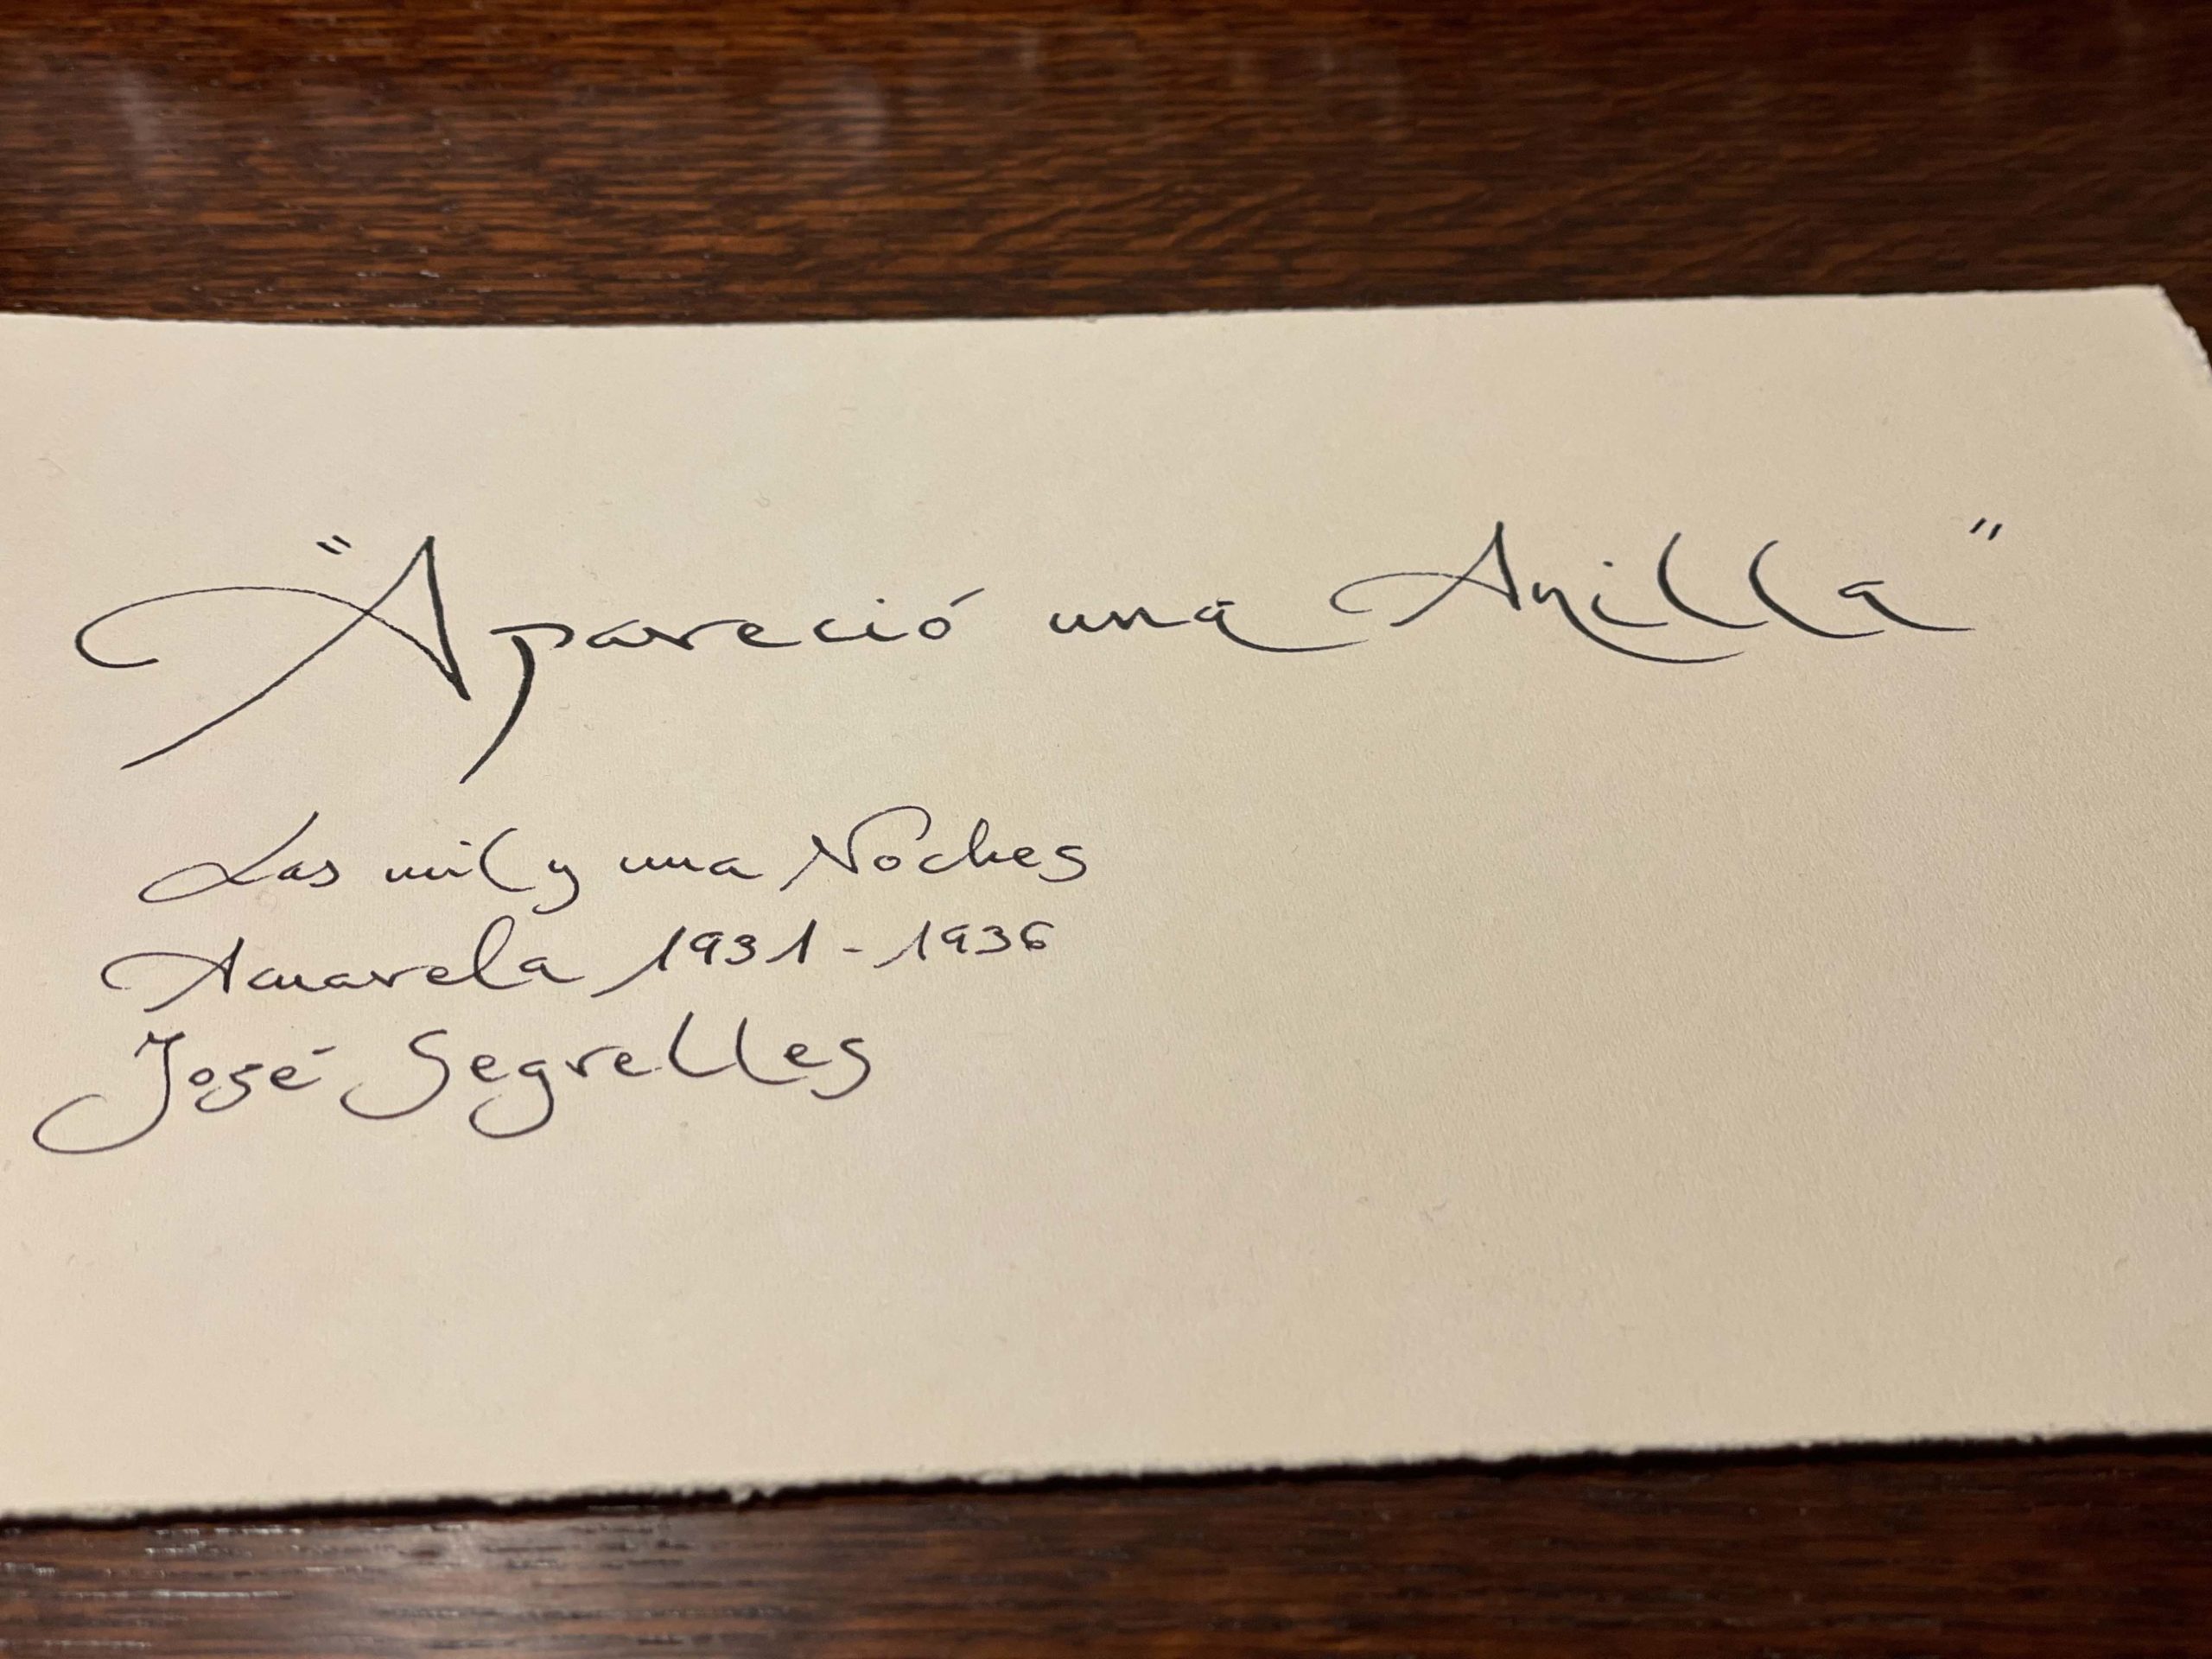 "Apareció una Anilla"
Las mil y una Noches
Acuarela 1931-1936
José Segrelles